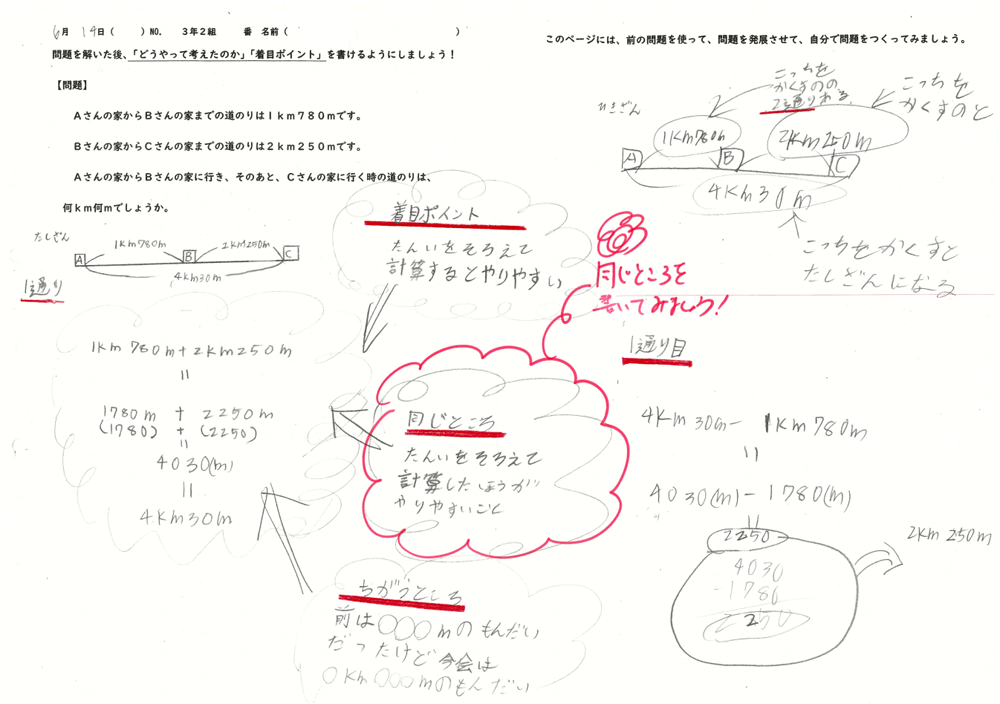 6月 14日（ ）NO. ３年２組 番 名前（ ）
問題を解いた後、「どうやって考えたのか」「着目ポイント」を書けるようにしましょう！
【問題】
Ａさんの家からＢさんの家までの道のりは１ｋｍ７８０ｍです。
Ｂさんの家からＣさんの家までの道のりは２ｋｍ２５０ｍです。
Ａさんの家からＢさんの家に行き、そのあと、Ｃさんの家に行く時の道のりは、
何ｋｍ何ｍでしょうか。
たしざん
1km780m 2km250m
A B C
4km30m
1通り
1km 780m+2km250m
=
1780m + 2250m
(1780) + (2250)
=
4030(m)
=
4km30m
着目ポイント
たんいをそろえて
計算するとやりやすい
同じところ
たんいをそろえて
計算したほうが
やりやすいごく
ちがうところ
前は○○○mのもんだい
だったけど今会は
○km○○○mのもんだい
同じところを
書いてみましょう！
このページには、前の問題を使って、問題を発展させて、自分で問題をつくってみましょう。
ひきざん
こっちを
かくすのの
2通りある
こっちを
かくすのと
1km780m 2km250m
A B C
4km30m
こっちをかくすと
たしざんになる
1通り目
4km30m－1km780m
=
4030(m)－1780(m)
=
2250
2km250m
4030
-1780
2250